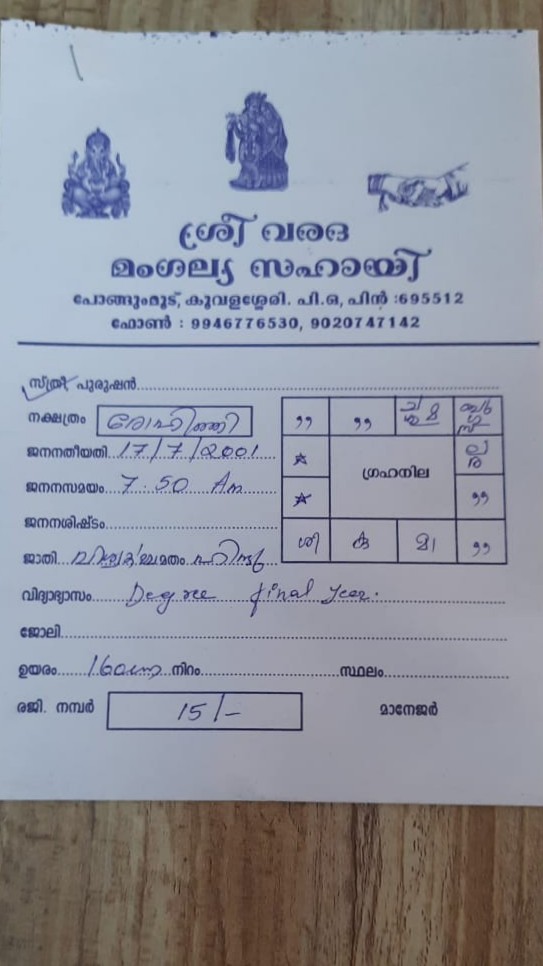 ശ്രീ വരദ
മംഗല്യ സഹായി
പോങ്ങുംമൂട്, കൂവളശ്ശേരി. പി.ഒ, പിൻ :695512
ഫോൺ : 9946776530, 9020747142
സ്ത്രീ പുരുഷൻ
നക്ഷത്രം രോഹിണി
ജനനതീയതി 17/7/2001
ജനനസമയം 7.50 Am
ജനനശിഷ്ടം
ഗ്രഹനില
ശി കു മാ
ജാതി മതം ഹിന്ദു
വിദ്യാഭ്യാസം Degree final year.
ജോലി
ഉയരം 160cm നിറം സ്ഥലം
രജി. നമ്പർ 15/- മാനേജർ